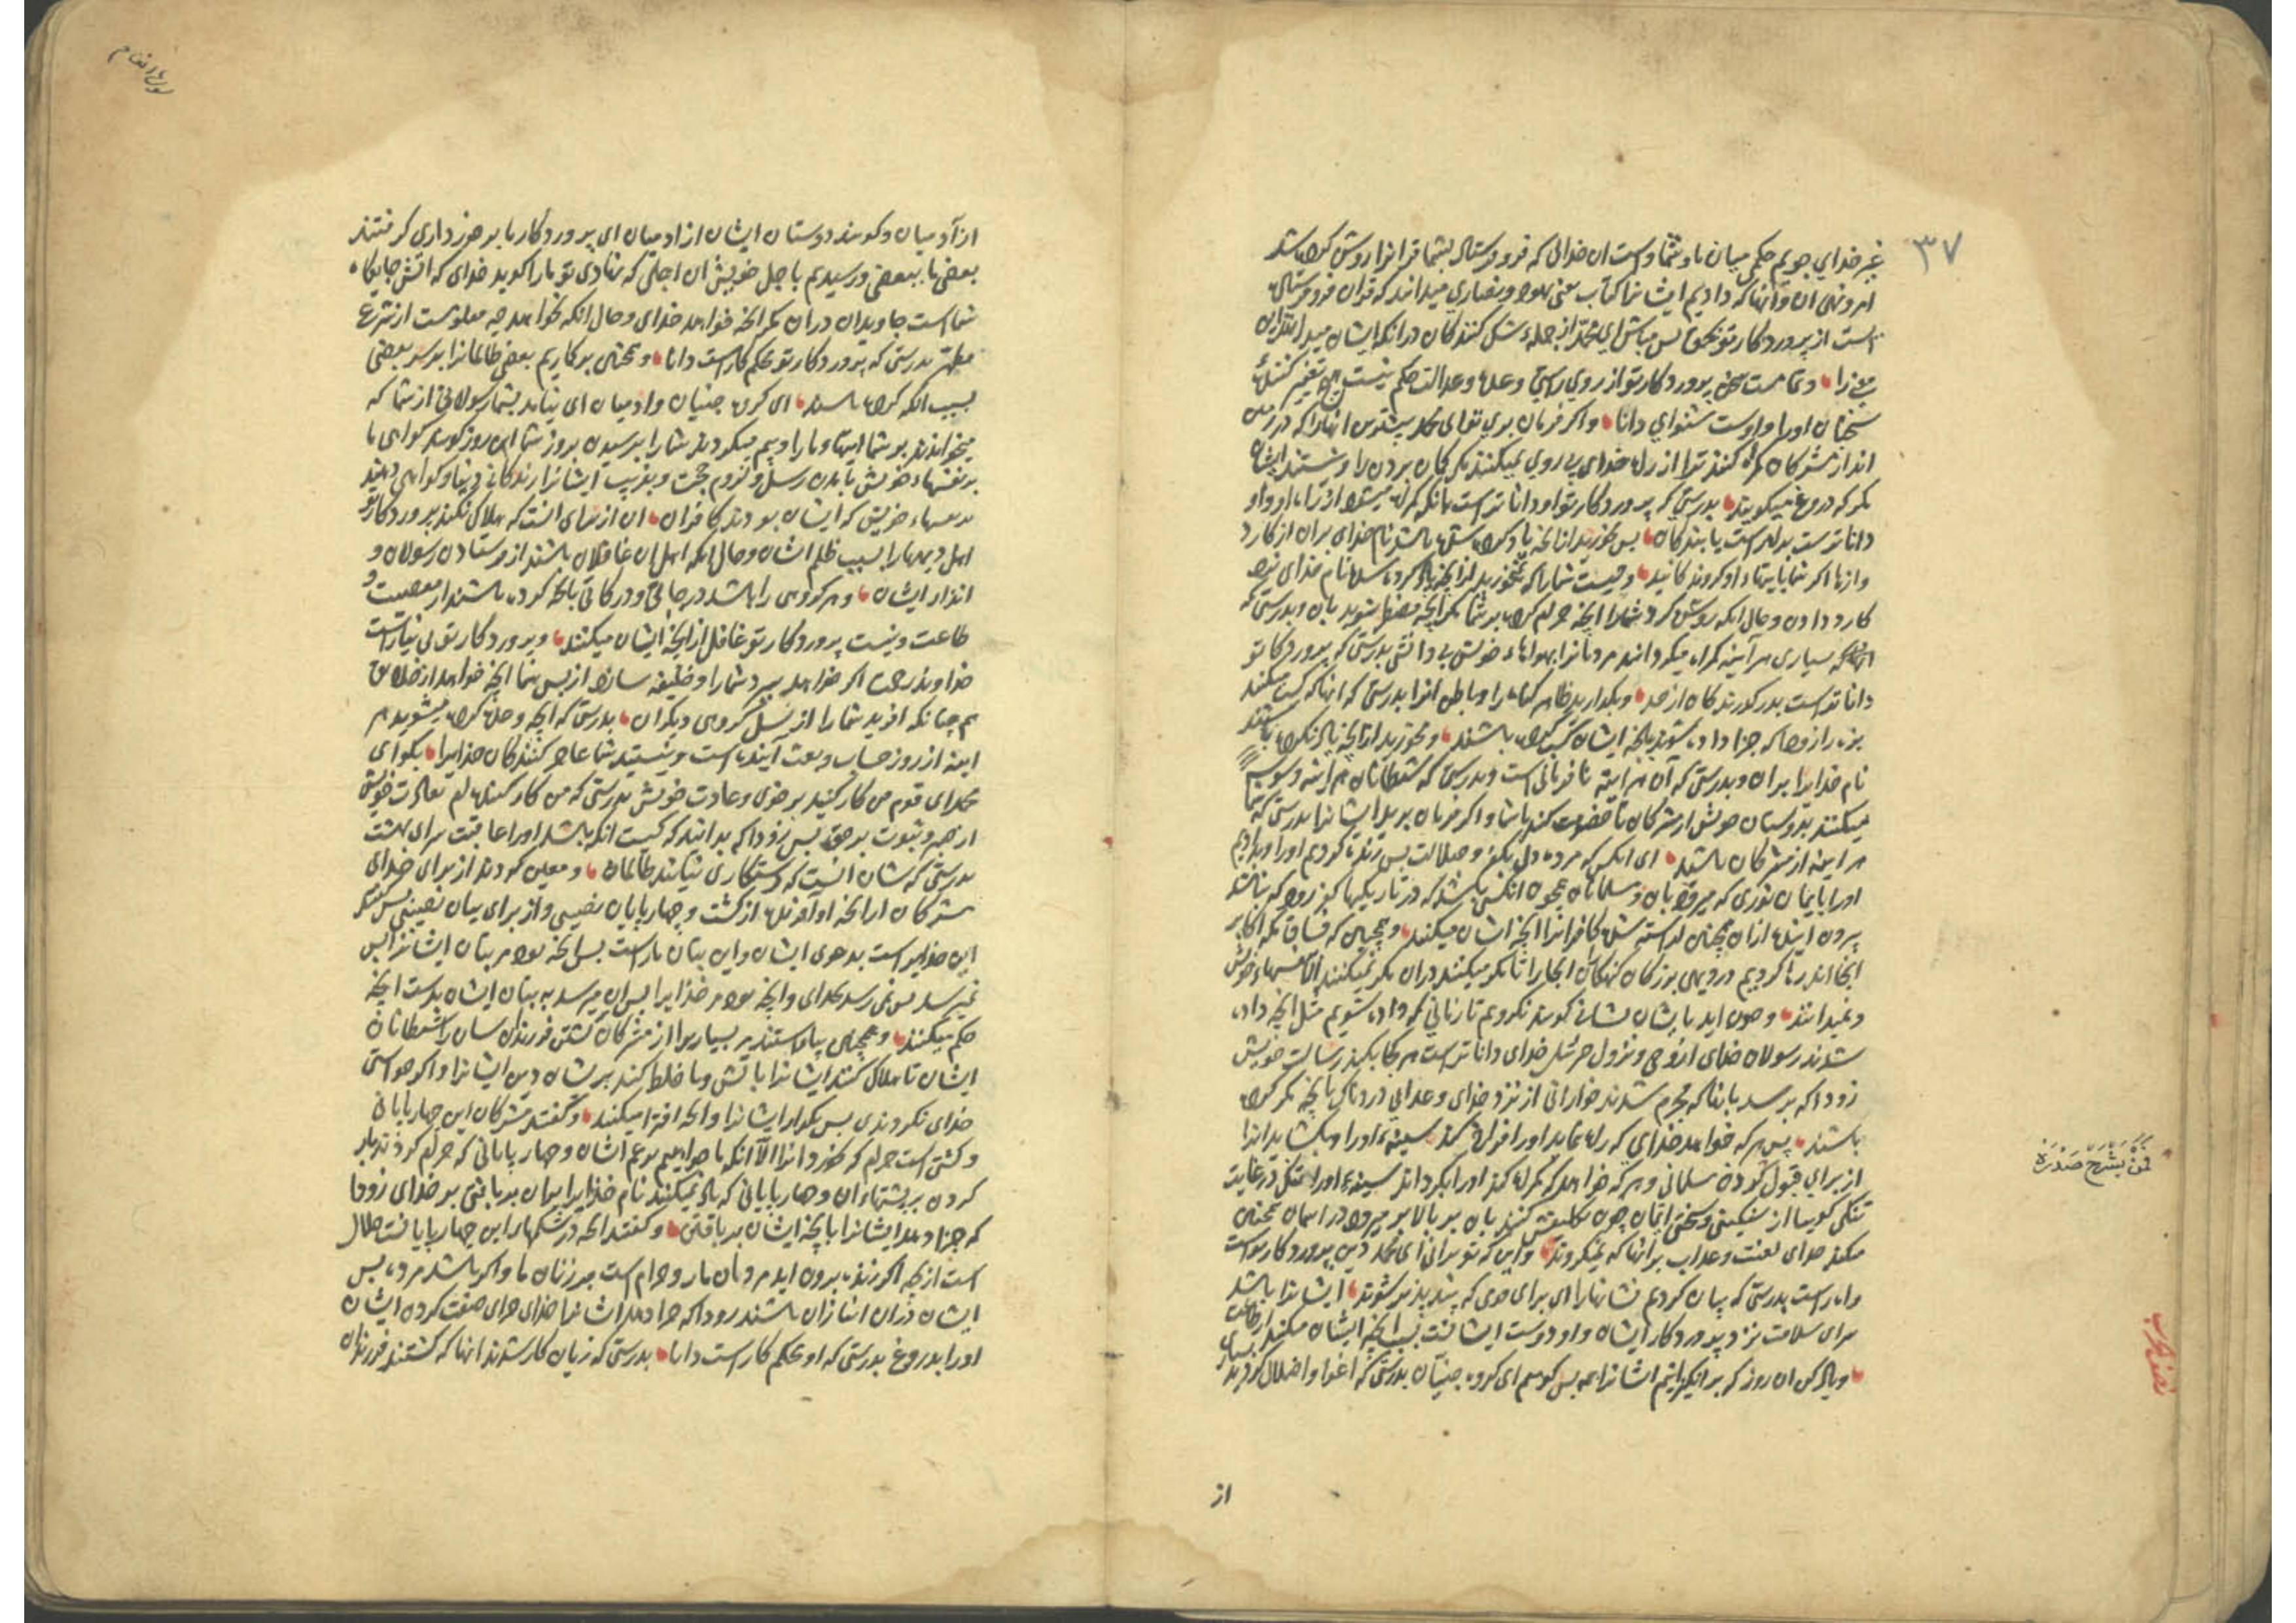 ۳۷
غیر خدای جویم حکمی میان ما و شما و است ان خدائی که فرو فرستاد بشما قرانرا روشن کرده شد
امر و نهی ان و آنها که دادیم ایشانرا کتاب یعنی یهود و نصاری میدانند که قران فرو فرستاده
است از پرورد کار تو بحق پس مباش ای محمد از جمله شک کنندکان در انکه ایشان میدانند
و تمامست سخن پرورد کار تو از روی راستی و عدل و عدالت حکم نیست هیچ تغییر کننده
سخنان اورا و اوست شنوای دانا و اکر فرمان بری تو ای محمد بیشترین انها را که در زمین
اند از مشرکان کمراه کنند ترا از راه خدای پی روی نمیکنند مکر کمان بردن را و نیستند ایشان
مکر که دروغ میکویند بدرستی که پرورد کار تو او داناترست بانکه کمراه میشود از راه او و او
داناترست براه راست یابندکان پس بخورید از انچه یاد کرده شده باشد نام خدای بران از کارد
و ازها اکر شما بایتهاء او کروندکانید و چیست شمارا که نخورید از انچه یاد کرده باشد نام خدای نزد
کارد دادن و حال انکه روشن کرد شمارا انچه حرام کرده بر شما مکر انچه مضطر شوید بان و بدرستی که
بسیاری هر آینه کمراه میکردانند مردمانرا بهواهاء خویش بی دانشی بدرستی که پرورد کار تو
داناترست بدر کذرندکان از حد و بکذارید ظاهر کناه را و باطن انرا بدرستی که انها که کسب میکنند
بزه را زود که جزا داده شوند بانچه ایشان کسب کرده باشند و مخورید از انچه یاد نکرده باشند
نام خدایرا بران و بدرستی که آن هر اینه نا فرمانی است و بدرستی که شیطانان هر اینه وسوسه
میکنند بدوستان خویش از مشرکان تا خصومت کنند باشما و اکر فرمان برید ایشانرا بدرستی که شما
هر اینه از مشرکان باشید ای انکس که مرده دل بکفر و ضلالت پس زنده کردیم اورا و دادیم
اورا بایمان نوری که میرود بان و مسلمانان همچون انکس باشد که در تاریکیها کفر رود که نباشد
بیرون اینده از ان همچنین اراسته شده کافرانرا انچه ایشان میکنند و همچنین که فساق مکه اکابر
انجااند رها کردیم در دیهی بزرکان کنهکاران انجا را تا مکر میکنند دران مکر نمیکنند الا بنفسهاء خویش
و نمیدانند و چون اید بایشان نشانی کویند نکرویم تا زمانی که داده شویم مثل انچه داده
شدند رسولان خدای از وحی و نزول جبرئیل خدای داناترست هر کجا بکند رسالت خویش
زود که برسد بانها که مجرم شدند خواراتی از نزد خدای و عذابی دردناک بانچه مکر کرده
باشند پس هر که خواهد خدای که راه نماید اورا فراخ کند سینهء اورا و بکشاید انرا
از برای قبول کردن مسلمانی و هر که خواهد که کمراه کند اورا بکرداند سینهء اورا تنک در غایت
تنکی کوییا از سنکینی و سختی ایمان چون تکلیفش کنند بان بر بالا بر میرود در اسمان همچنین
میکند خدای لعنت و عذاب بر انها که نمیکروند و این که تو برانی ای محمد دین پرورد کار تواست
و راه راست بدرستی که بیان کردیم نشانهارا ای برای قومی که پند پذیر شوند ایشانرا باشد
سرای سلامت نزد پرورد کار ایشان و او دوست ایشانست بسبب انچه ایشان میکنند
و یاد کن ان روز که بر انکیزانیم ایشانرا همه پس کوییم ای کروه جنیان بدرستی که اغوا و اضلال کردید
فَمَنْ یَشْرَحْ صَدْرَهُ
نصف حزب
از
سوره انعام
از آدمیان و کویند دوستان ایشان از ادمیان ای پرورد کار ما برخورداری کرفتند
بعضی ما ببعضی و رسیدیم باجل خویش ان اجلی که نهادی تو مارا کوید خدای که اتش جایکاه
شماست جاویدان دران مکر انچه خواهد خدای و حال انکه نخواهد چه معلومست از شرع
مطهر بدرستی که پرورد کار تو محکم کارست دانا و همچنین برکاریم بعضی ظالمانرا بر سر بعضی
بسبب انکه کرده باشند ای کروه جنیان و ادمیان ای نیامد بشما رسولانی از شما که
میخواندند بر شما ایتهاء ما را و بیم میکردند شما را برسیدن بروز شما این روز کویند کواهی ما
بر نفسهاء خویش بامدن رسل و لزوم حجت و بفریب ایشانرا زندکانی دنیا و کواهی دهند
بر نفسهاء خویش که ایشان بودند کافران ان از برای انست که هلاک نکند پرورد کار تو
اهل دیهها را بسبب ظلم ایشان و حال انکه اهل ان غافلان باشند از فرستادن رسولان و
انذار ایشان و هر کروهی را باشد درجاتی و درکاتی بانچه کرده باشند از معصیت و
طاعت و نیست پرورد کار تو غافل از انچه ایشان میکنند و پرورد کار تو بی نیازست
خداوند رحمت اکر خواهد ببرد شما را و خلیفه سازد از پس شما انچه خواهد از خلایق
هم چنانکه افرید شما را از نسل کروهی دیکران بدرستی که انچه وعده کرده میشوید هر
اینه از روز حساب و بعث آینده است و نیستید شما عاجز کنندکان خدایرا بکو ای
محمد ای قوم من کار کنید بر خوی و عادت خویش بدرستی که من کار کننده ام بعادت خویش
از صبر و ثبوت بر حق پس زود که بدانید که کیست انکه باشد اورا عاقبت سرای بهشت
بدرستی که شان انست که رستکاری نیابند ظالمان و معین کردند از برای خدای
مشرکان از انچه او آفریده از کشت و چهارپایان نصیبی و از برای بتان نصیبی پس کفتند
این خدایراست بدعوی ایشان و این بتان ماراست پس انچه بود مر بتان ایشانرا پس
نمیرسد پس نمی رسد بخدای و انچه بود مر خدایرا پس ان میرسد به بتان ایشان بدست انچه
حکم میکنند و همچنین بیاراستند بر بسیاری از مشرکان کشتن فرزندان شان را شیطانان
ایشان تا هلاک کنند ایشانرا باتش و تا خلط کنند بر ایشان دین ایشانرا و اکر خواستی
خدای نکردندی پس بکذار ایشانرا و انچه افترا میکنند و کفتند مشرکان این چهارپایان
و کشتی است حرام که نخورد انرا الا آنکه ما خواهیم بزعم ایشان و چهارپایانی که حرام کردند بار
کردن بر پشتهاء ان و چهارپایانی که یاد نمیکنند نام خدایرا بران بر بافتنی بر خدای زود
که جزا دهد ایشانرا بانچه ایشان بر بافتنی و کفتند انچه در شکمهاء این چهارپایانست حلال
است از بچه اکر زنده بیرون اید مردان مارا و حرام است بر زنان ما و اکر باشد مرده پس
ایشان دران انبازان باشند زود که جزا دهد ایشانرا خدای جزای صفت کردن ایشان
اورا بدروغ بدرستی که او محکم کارست دانا بدرستی که زیان کار شدند انها که کشتند فرزندان